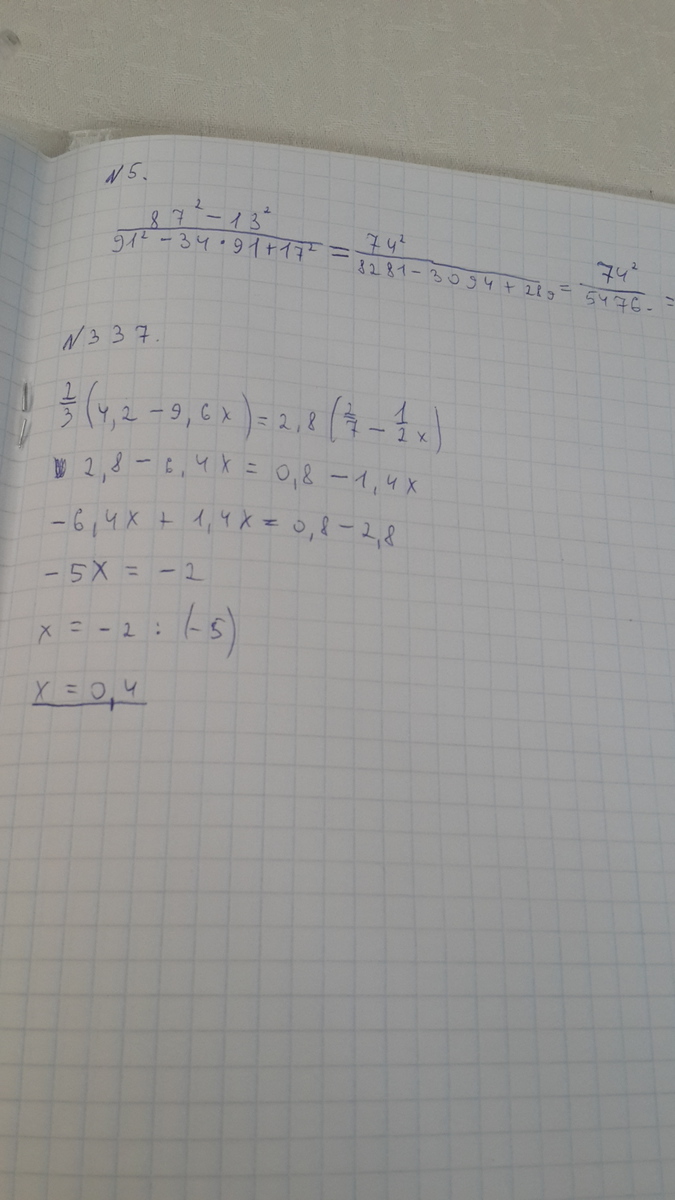 N5.
87² - 13² / 91² - 34 · 91 + 17² = 74² / 8281 - 3094 + 289 = 74² / 5476 =
N337.
2/3 (4,2 - 9,6x) = 2,8 (2/7 - 1/2 x)
2,8 - 6,4x = 0,8 - 1,4x
-6,4x + 1,4x = 0,8 - 2,8
-5x = -2
x = -2 : (-5)
x = 0,4